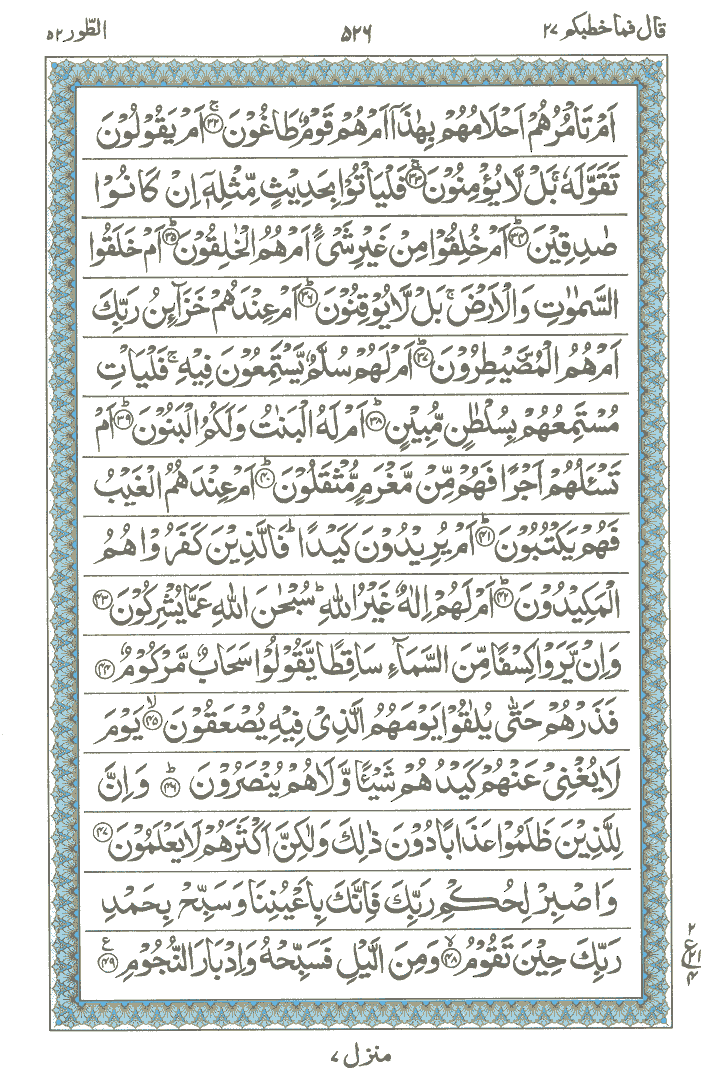 الطّور ٥٢ ٥٢٦ قال فما خطبكم ٢٧
اَمْ تَاْمُرُهُمْ اَحْلَامُهُمْ بِهٰذَاۤ اَمْ هُمْ قَوْمٌ طَاغُوْنَ ۚ﴿٣٢﴾ اَمْ يَقُوْلُوْنَ
تَقَوَّلَهٗ ۚ بَلْ لَّا يُؤْمِنُوْنَ ۚ﴿٣٣﴾ فَلْيَاْتُوْا بِحَدِيْثٍ مِّثْلِهٖۤ اِنْ كَانُوْا
صٰدِقِيْنَ ؕ﴿٣٤﴾ اَمْ خُلِقُوْا مِنْ غَيْرِ شَيْءٍ اَمْ هُمُ الْخٰلِقُوْنَ ؕ﴿٣٥﴾ اَمْ خَلَقُوا
السَّمٰوٰتِ وَالْاَرْضَ ۚ بَلْ لَّا يُوْقِنُوْنَ ؕ﴿٣٦﴾ اَمْ عِنْدَهُمْ خَزَآئِنُ رَبِّكَ
اَمْ هُمُ الْمُصَۜيْطِرُوْنَ ؕ﴿٣٧﴾ اَمْ لَهُمْ سُلَّمٌ يَّسْتَمِعُوْنَ فِيْهِ ۚ فَلْيَاْتِ
مُسْتَمِعُهُمْ بِسُلْطٰنٍ مُّبِيْنٍ ؕ﴿٣٨﴾ اَمْ لَهُ الْبَنٰتُ وَلَكُمُ الْبَنُوْنَ ؕ﴿٣٩﴾ اَمْ
تَسْـَٔلُهُمْ اَجْرًا فَهُمْ مِّنْ مَّغْرَمٍ مُّثْقَلُوْنَ ؕ﴿٤٠﴾ اَمْ عِنْدَهُمُ الْغَيْبُ
فَهُمْ يَكْتُبُوْنَ ؕ﴿٤١﴾ اَمْ يُرِيْدُوْنَ كَيْدًا ؕ فَالَّذِيْنَ كَفَرُوْا هُمُ
الْمَكِيْدُوْنَ ؕ﴿٤٢﴾ اَمْ لَهُمْ اِلٰهٌ غَيْرُ اللّٰهِ ؕ سُبْحٰنَ اللّٰهِ عَمَّا يُشْرِكُوْنَ ﴿٤٣﴾
وَاِنْ يَّرَوْا كِسْفًا مِّنَ السَّمَآءِ سَاقِطًا يَّقُوْلُوْا سَحَابٌ مَّرْكُوْمٌ ﴿٤٤﴾
فَذَرْهُمْ حَتّٰى يُلٰقُوْا يَوْمَهُمُ الَّذِيْ فِيْهِ يُصْعَقُوْنَ ۙ﴿٤٥﴾ يَوْمَ
لَا يُغْنِيْ عَنْهُمْ كَيْدُهُمْ شَيْـًٔا وَّلَا هُمْ يُنْصَرُوْنَ ؕ﴿٤٦﴾ وَاِنَّ
لِلَّذِيْنَ ظَلَمُوْا عَذَابًا دُوْنَ ذٰلِكَ وَلٰكِنَّ اَكْثَرَهُمْ لَا يَعْلَمُوْنَ ﴿٤٧﴾
وَاصْبِرْ لِحُكْمِ رَبِّكَ فَاِنَّكَ بِاَعْيُنِنَا وَسَبِّحْ بِحَمْدِ
رَبِّكَ حِيْنَ تَقُوْمُ ۙ﴿٤٨﴾ وَمِنَ الَّيْلِ فَسَبِّحْهُ وَاِدْبَارَ النُّجُوْمِ ﴿٤٩﴾
٢
ع
٢١
٤
منزل ٧